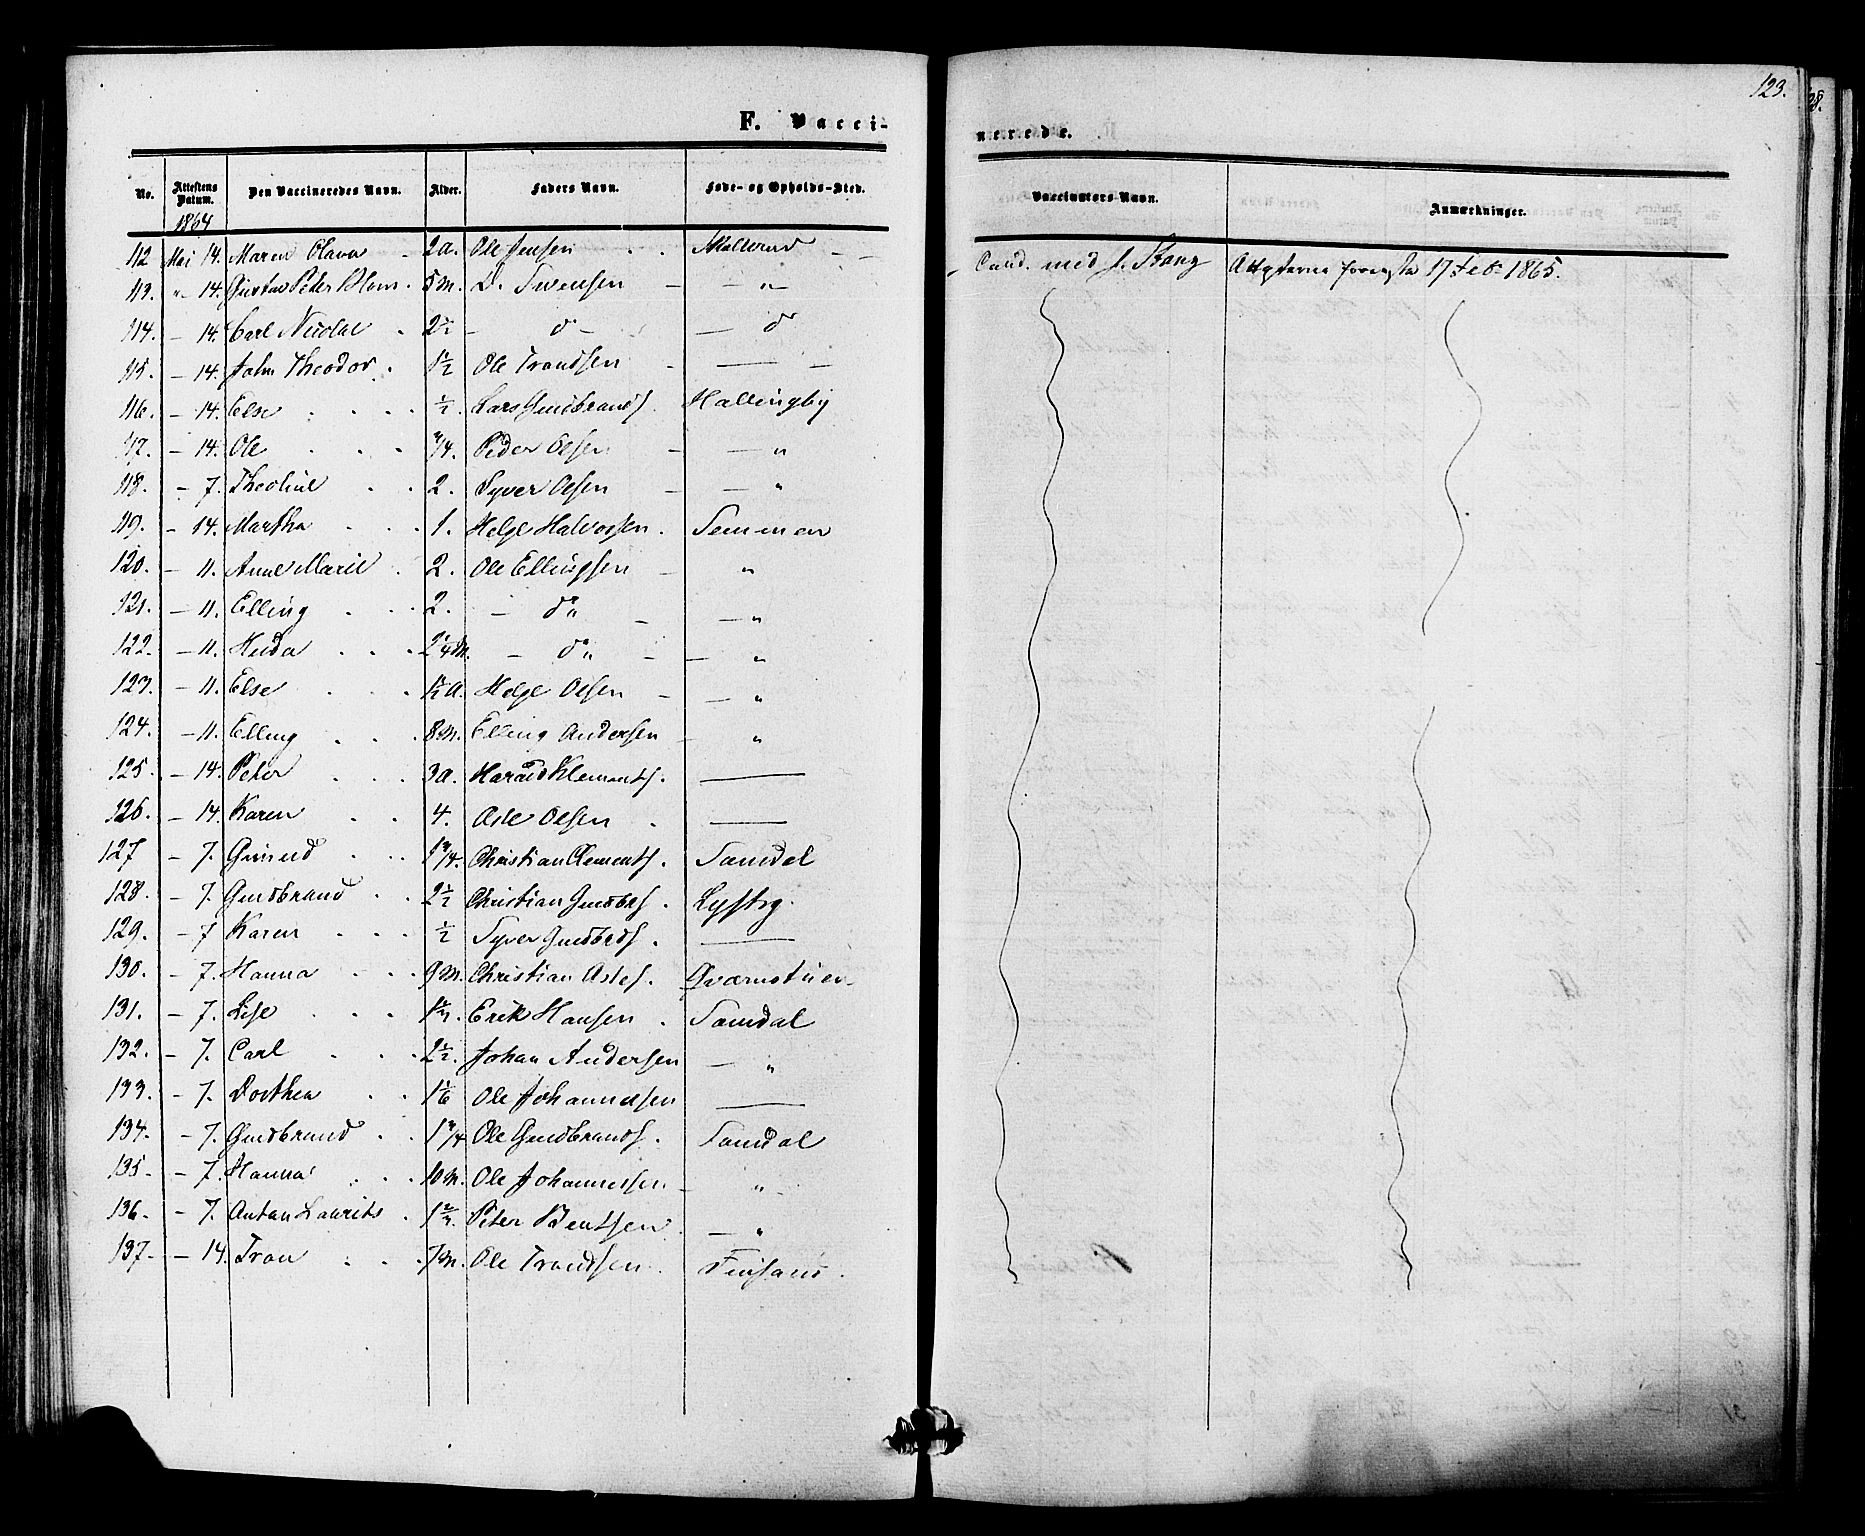 123.
28.
F. Vacci-
nerede.
No. Attestens Datum. Den Vaccineredes Navn. Alder. Faders Navn. Føde- og Opholds-Sted. Vaccinators Navn. Anmærkninger.
1864
112 Mai 14. Maren Olava 2 a. Ole Jensen Cand. med f. Attesterne foreviste 17 Feb. 1865.
113. " 14. Gustav Peter Blom 5 m. D. Svensen — " —
114. — 14. Carl Nicolai 2½ — d° — — d°
115. — 14. John Theodor 1½ Ole Trondsen — —
116. — 14. Else ½. Lars Gudbrands. Hallingby
117. — 14. Ole ¾. Peder Olsen — "
118. — 7. Theoline 2. Syver Olsen — "
119. — 14. Martha 1. Helge Halvorsen. Semmen
120. — 11. Anne Marie 2. Ole Ellingsen "
121. — 11. Elling 2. — d° " — "
122. — 11. — d° " — "
123. — 11. Else 1½ a. Helge Olsen — "
124. — 11. Elling 8 m. Elling Andersen "
125. — 14. Peter 3 a. Harald Klements. —
126. — 14. Karen 4. Asle Olsen —
127 — 7. 1¾. Christian Clements. Samdal
128. — 7. Gudbrand 2½ Christian Gudbrs.
129. — 7 Karen ½ Syver Gudbrds. —
130. — 7. Hanna 9 m. Christian Asles. Qværnstuen
131. — 7. Lise Erik Hansen Samdal
132. — 7. Carl 2½. Johan Andersen — "
133. — 7. Dorthea 1⅙ Ole Johannesen —
134. — 7. Gudbrand 1¾ Ole Gudbrands. Samdal
135. — 7. Hanna 10 m. Ole Johannesen "
136. — 7. Anton Laurits 1⅔. Peter Bentsen — "
137. — 14. Tron 7 m. Ole Trondsen Finsand.